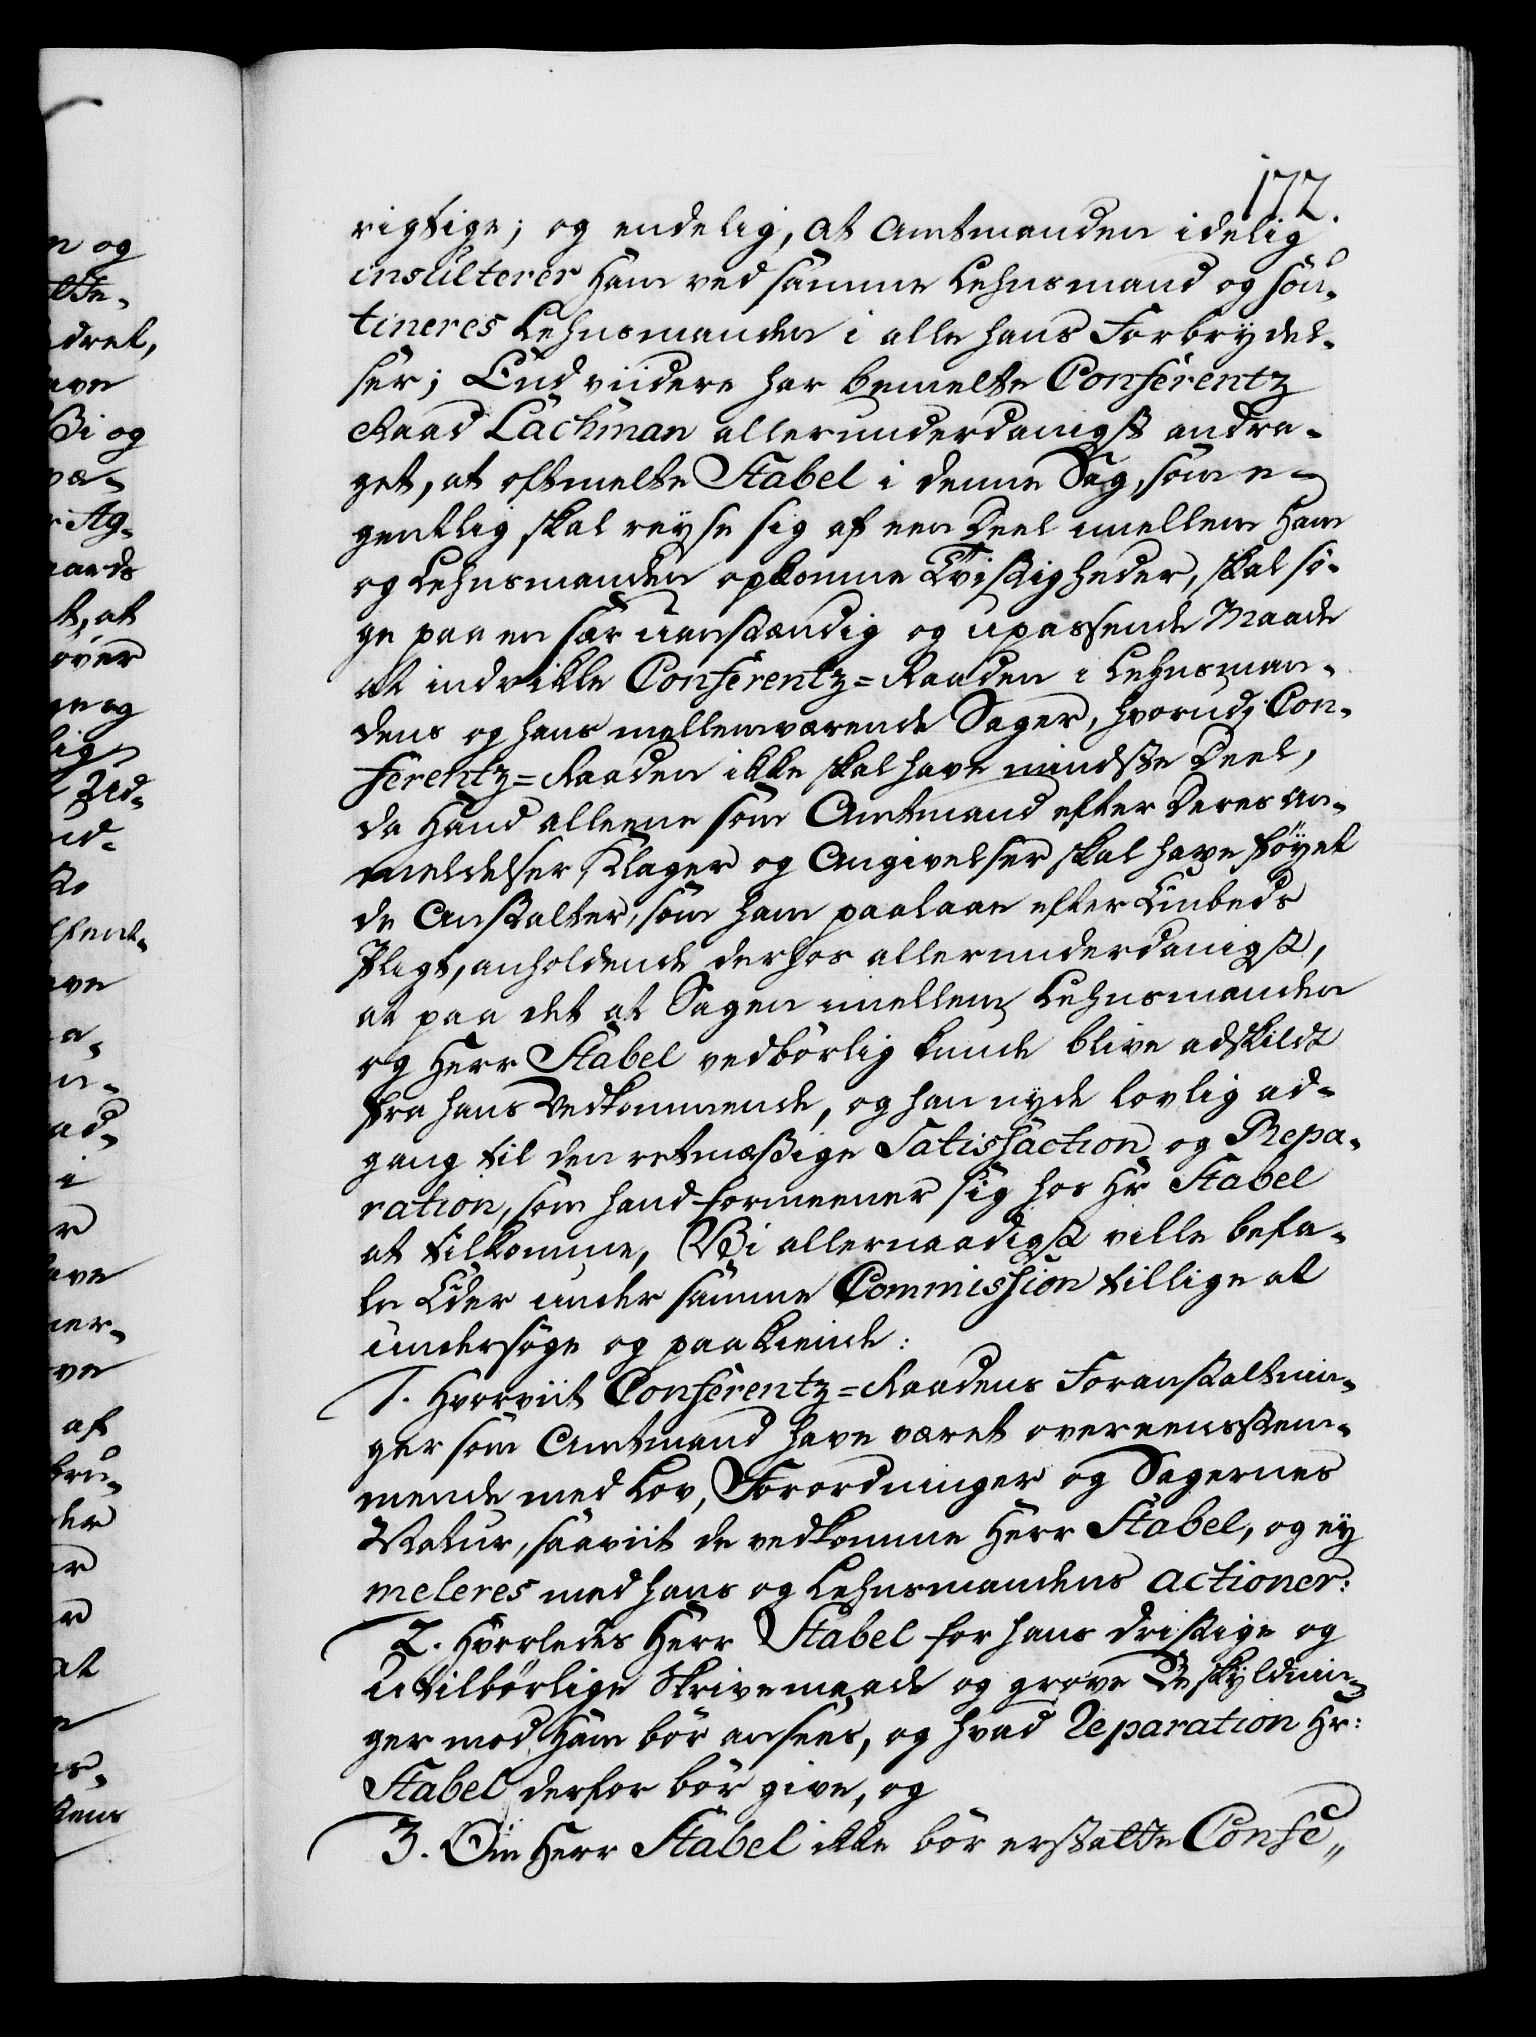 172.
rigtige; og endelig, at Amtmanden idelig
insulterer ham ved samme Lehnsmand og sou-
tineres Lehnsmanden i alle hans Forbrydel-
ser; End viidere har bemelte Conferentz
Raad Lachman allerunderdanigst andra-
get, at oftmelte Stabel i denne Sag, som e-
gentlig skal reyse sig af een Deel imellem ham
og Lehnsmanden opkomne Tvistigheder, skal sö-
ge paa en sær uanstændig og upassende Maade
at indvikle Conferentz-Raaden i Lehnsman-
dens og hans mellemværende Sager, hvorudj Con-
ferentz-Raaden ikke skal have mindste Deel,
da hand alleene som Amtmand efter deres An-
meldelser, Klager og Angivelser skal have föyet
de Anstalter, som ham paalaae efter Embeds
Pligt, anholdende derhos allerunderdanigst,
at paa det at Sagen imellem Lehnsmanden
og Herr Stabel vedbörlig kunde blive adskildt
fra hans Vedkommende, og han nyde lovlig ad-
gang til den retmæssige Satisfaction og Repa-
ration, som hand formeener sig hos Hr Stabel
at tilkomme, Vi allernaadigst ville befa-
le Eder under samme Commission tillige at
undersöge og paakiende:
1. Hvorviit Conferentz-Raadens Foranstaltnin-
ger som Amtmand have været overeensstem-
mende med Lov, Forordninger og Sagernes
Natur, saaviit de vedkomme Herr Stabel, og ey
meleres med hans og Lehnsmandens Actioner:
2. Hvorledes Herr Stabel for hans dristige og
utilbörlige Skrivemaade og grove Beskyldnin-
ger mod ham bör ansees, og hvad Reparation Hr:
Stabel derfor bör give, og
3. Om Herr Stabel ikke bör erstatte Confe„